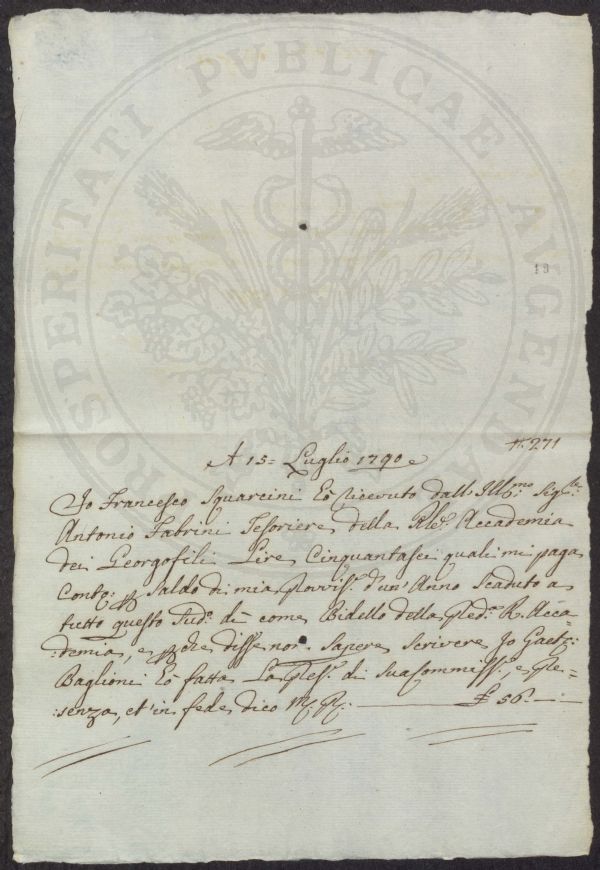 PROSPERITATI PVBLICAE AVGENDAE
19
N. 271
A 15= Luglio 1790
Io Francesco Squarcini hò ricevuto dall: Ill:mo Sig:re
Antonio Fabrini Tesoriere della Rle: Accademia
dei Georgofili Lire Cinquantasei quali mi paga
Conto: p Saldo di mia Provvis: d'un' Anno Scaduto a
tutto questo Sud:o dì come Bidello della Pred:a R. Acca
=demia, e p che disse non Sapere Scrivere Io Gaet:o
Baglioni hò fatta La Pres:e di sua Commiss:e, e Pre=
:senza, et in fede dico M: P: £ 56. —